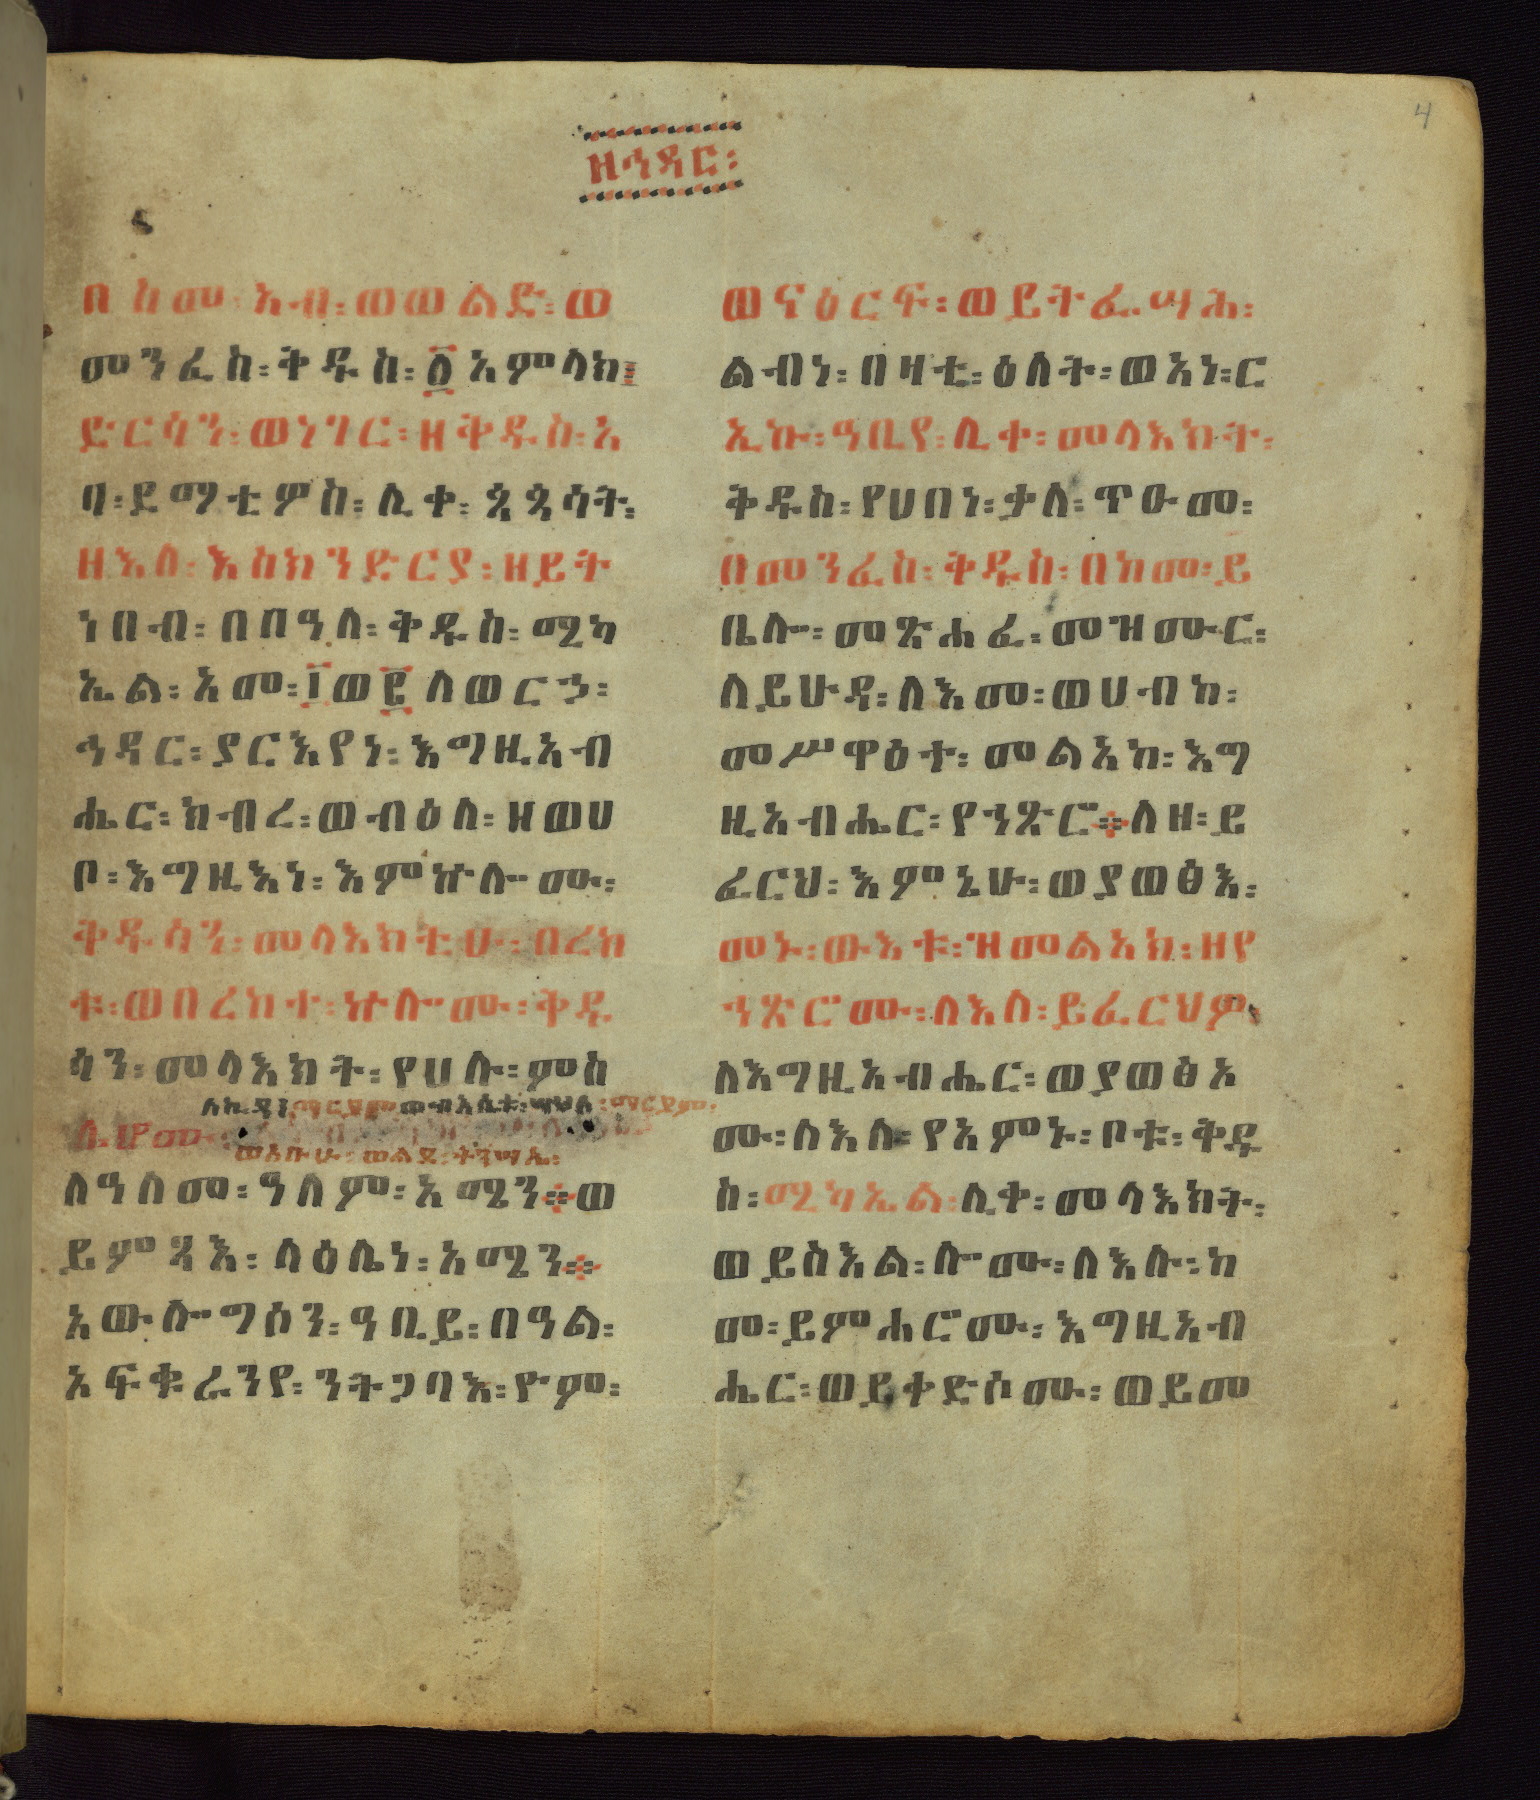 4
ዘኅዳር፡
በስመ፡ አብ፡ ወወልድ፡ ወ
መንፈስ፡ ቅዱስ፡ ፩ አምላክ፤
ድርሳን፡ ወነገር፡ ዘቅዱስ፡ አ
ባ፡ ደማቴዎስ፡ ሊቀ፡ ጳጳሳት፡
ዘእለ፡ እስክንድርያ፡ ዘይት
ነበብ፡ በበዓለ፡ ቅዱስ፡ ሚካ
ኤል፡ አመ፡ ፲ወ፪ ለወርኃ፡
ኅዳር፡ ያርእየነ፡ እግዚአብ
ሔር፡ ክብረ፡ ወብዕለ፡ ዘወሀ
ቦ፡ እግዚእነ፡ እምኵሎሙ፡
ቅዱሳን፡ መላእክቲሁ፡ በረከ
ቱ፡ ወበረከተ፡ ኵሎሙ፡ ቅዱ
ሳን፡ መላእክት፡ የሀሉ፡ ምስ
ለኪዳነ ማርያም ወብእሲቱ፡ ሣህለ፡ ማርያም፡
ሌሆሙ
ወአቡሁ፡ ወልደ፡ ተንሣኤ፡
ለዓለመ፡ ዓለም፡ አሜን፨ ወ
ይምጻእ፡ ላዕሌነ፡ አሜን፨
አውሎግሶን፡ ዓቢይ፡ በዓል፡
አፍቁራንየ፡ ንትጋባእ፡ ዮም፡
ወናዕርፍ፡ ወይትፌሣሕ፡
ልብነ፡ በዛቲ፡ ዕለት፡ ወአነ፡ ር
ኢኩ፡ ዓቢየ፡ ሊቀ፡ መላእክት፡
ቅዱስ፡ የሀበነ፡ ቃለ፡ ጥዑመ፡
በመንፈስ፡ ቅዱስ፡ በከመ፡ ይ
ቤሎ፡ መጽሐፈ፡ መዝሙር፡
ለይሁዳ፡ ለእመ፡ ወሀብከ፡
መሥዋዕተ፡ መልአከ፡ እግ
ዚአብሔር፡ የኀጽሮ፨ ለዘ፡ ይ
ፈርህ፡ እምኔሁ፡ ወያወፅእ፡
መኑ፡ ውእቱ፡ ዝመልአክ፡ ዘየ
ኀጽሮሙ፡ ለእለ፡ ይፈርህዎ፡
ለእግዚአብሔር፡ ወያወፅአ
ሙ፡ ለእለ፡ የአምኑ፡ ቦቱ፡ ቅዱ
ስ፡ ሚካኤል፡ ሊቀ፡ መላእክት፡
ወይስእል፡ ሎሙ፡ ለእሉ፡ ከ
መ፡ ይምሐሮሙ፡ እግዚአብ
ሔር፡ ወይቀድሶሙ፡ ወይመ